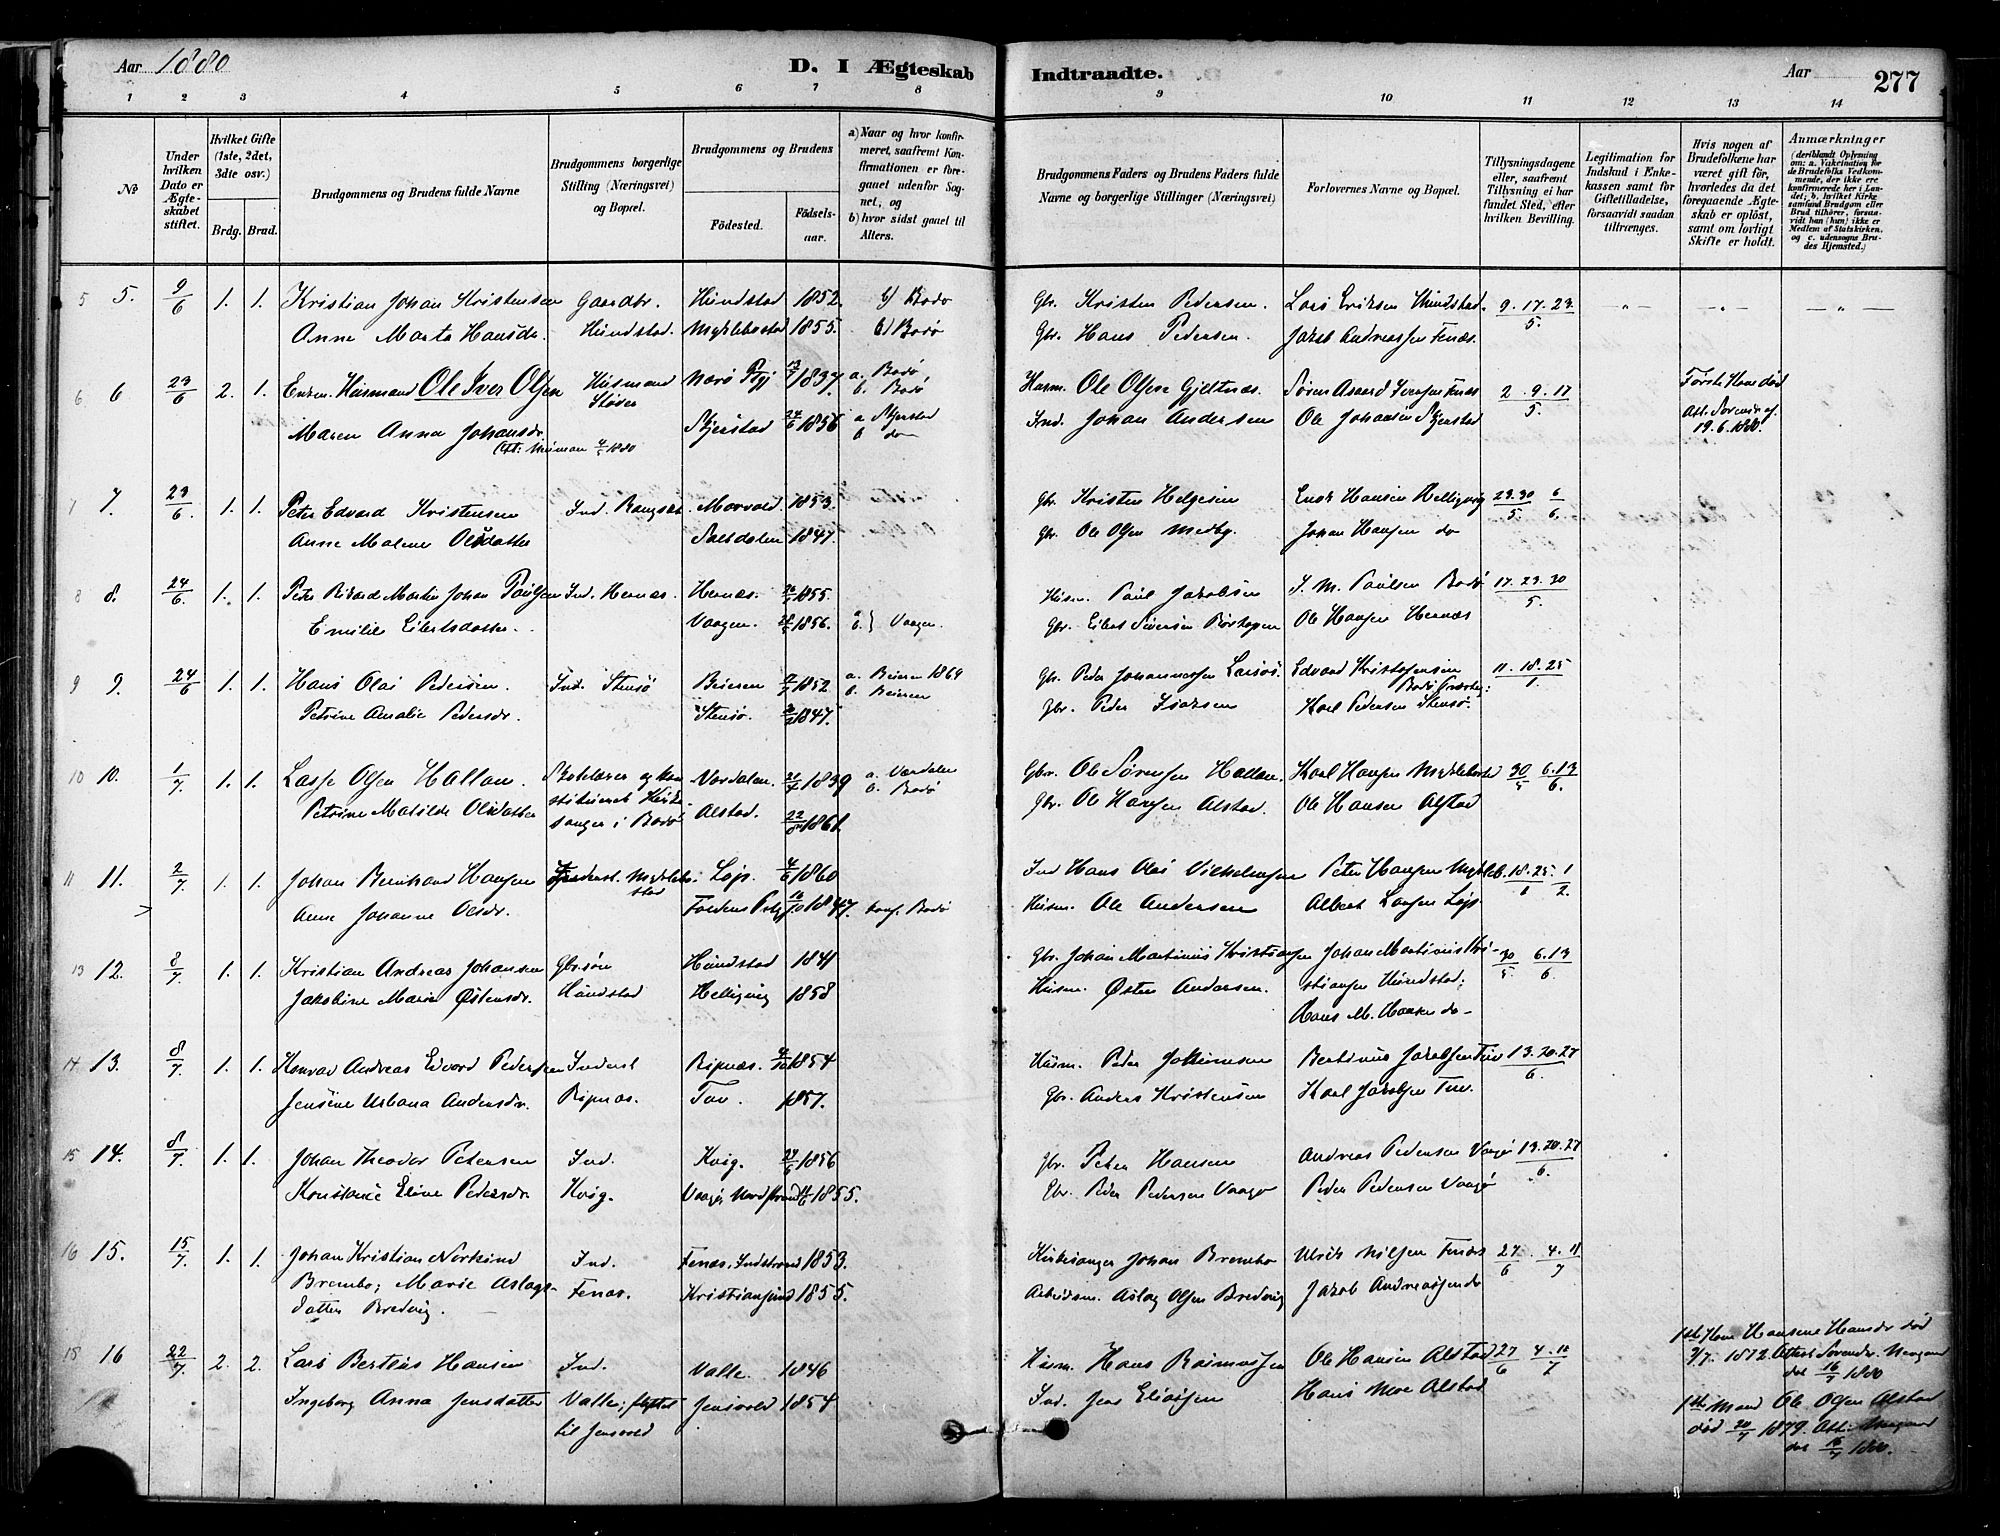 Aar 1880
D. I Ægteskab
Indtraadte.
Aar
277
1 2 3 4 5 6 7 8 9 10 11 12 13 14
No
Under hvilken Dato er Ægteskabet stiftet.
Hvilket Gifte (1ste, 2det, 3dte osv.)
Brdg. Brud.
Brudgommens og Brudens fulde Navne
Brudgommens borgerlige Stilling (Næringsvei) og Bopæl.
Brudgommens og Brudens
Födested.
Födselsaar.
a) Naar og hvor konfirmeret, saafremt Konfirmationen er foregaaet udenfor Sognet, og
b) hvor sidst gaaet til Alters.
Brudgommens Faders og Brudens Faders fulde Navne og borgerlige Stillinger (Næringsvei)
Forlovernes Navne og Bopæl.
Tillysningsdagene eller, saafremt Tillysning ei har fundet Sted, efter hvilken Bevilling.
Legitimation for Indskud i Enkekassen samt for Giftetilladelse, forsaavidt saadan tiltrænges.
Hvis nogen af Brudefolkene har været gift för, hvorledes da det foregaaende Ægteskab er oplöst, samt om lovligt Skifte er holdt.
Anmærkninger
(deriblandt Oplysning om: a. Vakcination for de Brudefolks Vedkommende, der ikke ere konfirmerede her i Landet; b. hvilket Kirkesamfund Brudgom eller Brud tilhörer, forsaavidt han (hun) ikke er Medlem af Statskirken, og c. udensogns Brudes Hjemsted.)
5 5. 9/6 1. 1. Kristian Johan Kristensen Gaardbr. Hundstad 1852. b) Bodø Gbr. Kristen Pedersen. Lars Eriksen Hundstad 9. 17. 23/5.
Anne Marta Hansdr. Hundstad Myklebostad 1855. b) Bodø Gbr. Hans Pedersen. Jakob Andreassen Fenæs.
6 6 23/6 2. 1. Enkem. Husmand Ole Iver Olsen Husmand Nærø Pgj 1837. a. Bodø, b. Bodø Husm. Ole Olsen Gjeltnæs. 2. 9. 17/5. Første Kone død
Maren Anna Johansdr. Støver Skjerstad 24/6 1856 a Skjerstad b do Ind. Johan Andersen Ole Johansen Skjerstad Att. Sorenskr. af 19.6.1880.
7 7. 23/6. 1. 1. Peter Edvard Kristensen Ind. Morvold 1853. Gbr. Kristen Helgesen Hansen Helligvig 23. 30/5 6/6.
Anne Malene Olsdatter Saltdalen 1847. Gbr. Ole Olsen Medby. Johan Hansen do
8 8. 24/6. 1. 1. Peter Rikard Martin Johan Paulsen Ind. Hernæs. Hernæs. 1855. Husm. Paul Jakobsen J. M. Paulsen Bodø 17. 23. 30/5.
Emilie Eilertsdatter. Vaagen. 1856. a. b. } Vaagen. Gbr. Eilert Sivertsen Ole Hansen Hernæs
9 9. 24/6 1. 1. Hans Olai Pedersen. Ind. Stensø Beieren 1852 a. Beieren 1869 b. Beieren Gbr. Peder Johannessen Edvard Kristofersen 11. 18. 25/1.
Petrine Amalie Pedersdr. Stensø. 1847. Gbr. Peder Isaksen Karl Pedersen Stensø.
10 10. 1/7 1. 1. Lasse Olsen Hallan. Skolelærer og kon- Værdalen 1839 a. Værdalen b. Bodø Gbr. Ole Sørensen Hallan. Karl Hansen Myklebostad 30/5 6.13/6.
Petrine Matilde Olsdatter stitueret Kirkesanger i Bodø Alstad. 1861. Gbr. Ole Hansen Alstad. Ole Hansen Alstad
11 11. 2/7 1. 1. Johan Bernhard Hansen Myklebostad Løp. 4/6 1860 Ind Hans Olai Vilhelmsen Peter Hansen Mykleb. 18. 25/1 1/2
Anne Johanne Olsdr. Foldens Pgj 1847. konf. Bodø Husm. Ole Andersen Albert Larsen Løp.
13 12. 8/7 1. 1. Kristian Andreas Johansen Gbr.søn Hundstad 1841 Gbr. Johan Martinus Kristiansen Johan Martinus Kri- 30/5 6.13/6.
Jakobine Marie Østensdr. Hundstad Helligvig 1858 Husm. Østen Andersen. stiansen Hundstad;
Hans M. Hansen do-
14 13. 8/7. 1. 1. Konrad Andreas Edvard Pedersen Inderst Ripnæs. 1854 Husm. Peder Jokumsen Bertinus Jakobsen Tuv 13. 20. 27/6.
Jensine Urbana Andersdr. Ripnæs. Tuv. 1857. Gbr. Anders Kristensen Karl Jakobsen Tuv.
15 14. 8/7. 1. 1. Johan Theodor Petersen Ind. Kvig. 1856 Gbr. Peter Hansen Andreas Pedersen Vaagø 13. 20. 27/6.
Konstance Eline Pedersdr. Kvig. Vaagø, Nordstrand 1855. Gbr. Peder Pedersen Vaagø Peder Pedersen Vaagø
16 15. 15/7. 1. 1. Johan Kristian Ind. Fenæs, Indstrand 1853. Kirkesanger Johan Brembo Ulrik Nilsen Fenæs 27/6 4. 11/7
Brembo; Marie Aslags- Fenæs. Kristiansund 1855. Arbeidsm. Aslag Olsen Bredvig Jakob Andreassen do
datter Bredvig.
18 16 22/7. 2. 2. Lars Berteus Hansen Ind. Valle. 1846 Husm. Hans Rasmussen Ole Hansen Alstad 27/6 4. /7 1ste Kone Hansine Hansdr død
Ingeborg Anna Jensdatter Valle, flyttet Jensvold 1854 Ind. Jens Eliassen Hans Moe Alstad /7. 1872. Attest Sorenskr.
til Jensvold det 16/7 1880
1ste Mand Ole Olsen Alstad
død 20/7 1879. Att.
det 16/7 1880.